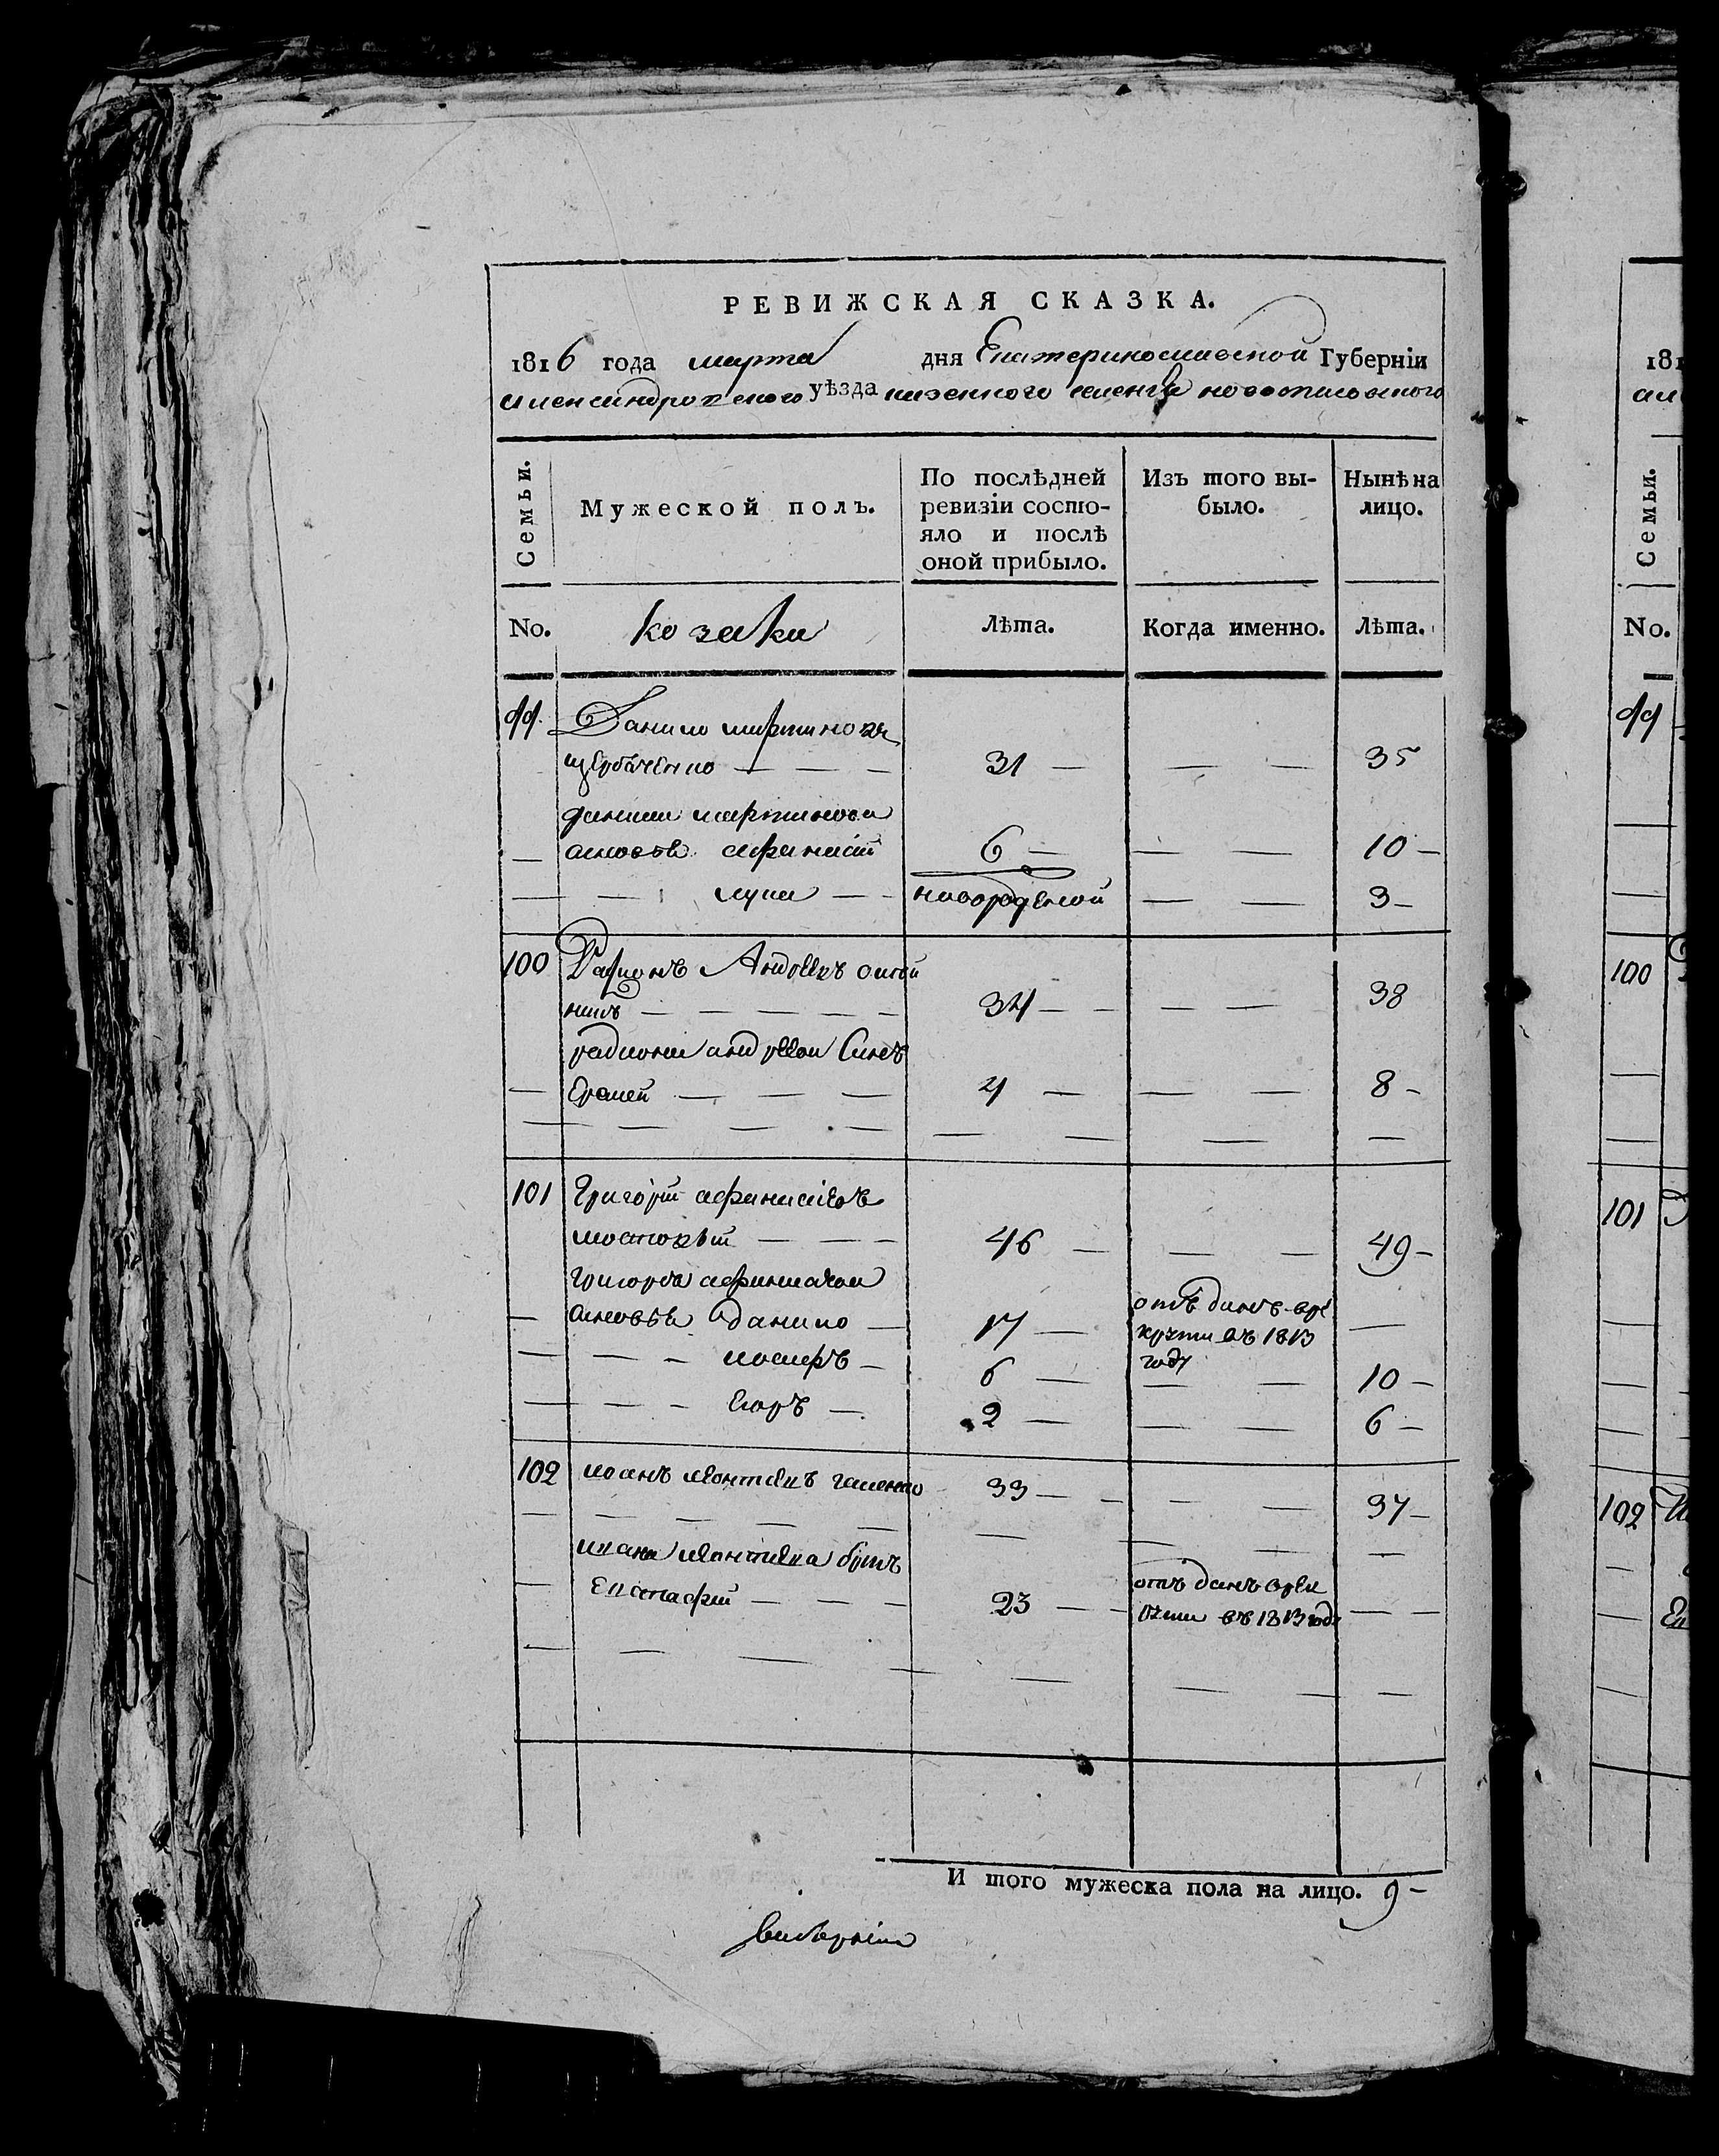 РЕВИЖСКАЯ СКАЗКА.
1816 года марта дня Екатеринославской Губерніи
александровского уѣзда казенного селенія
Семьи.
Мужеской полъ.
По послѣдней ревизіи состояло и послѣ оной прибыло.
Изъ того выбыло.
Нынѣ на лицо.
No.
козаки
лѣта.
Когда именно.
лѣта.
99. Данило мартиновъ
щербаченко — — — 31 — — — 35
данила мартинова
сыновья афанасій 6 — — — 10 —
— — лука — — новорожденой — — 3 —
100 Радионъ Андреевъ
— — — — — 34 — — — — 38
радиона андреева Синъ
— Еремей — — — 4 — — — 8 —
101 Григорій афанасіевъ
— — — 46 — — — 49 —
григорья афанасіева
— сыновья данило — 17 — отъданъ въ рекруты въ 1813 году —
— — — иосифъ — 6 — — — 10 —
— — — Егоръ — 2 — — — 6 —
102 иванъ леонтіевъ галенко 33 — — — — 37 —
ивана леонтіева братъ
— Евстафій — — — 23 — — отъданъ в рекруты въ 1813 году — —
И того мужеска пола на лицо. 9 —
181
Семьи.
No.
99
100
101
102